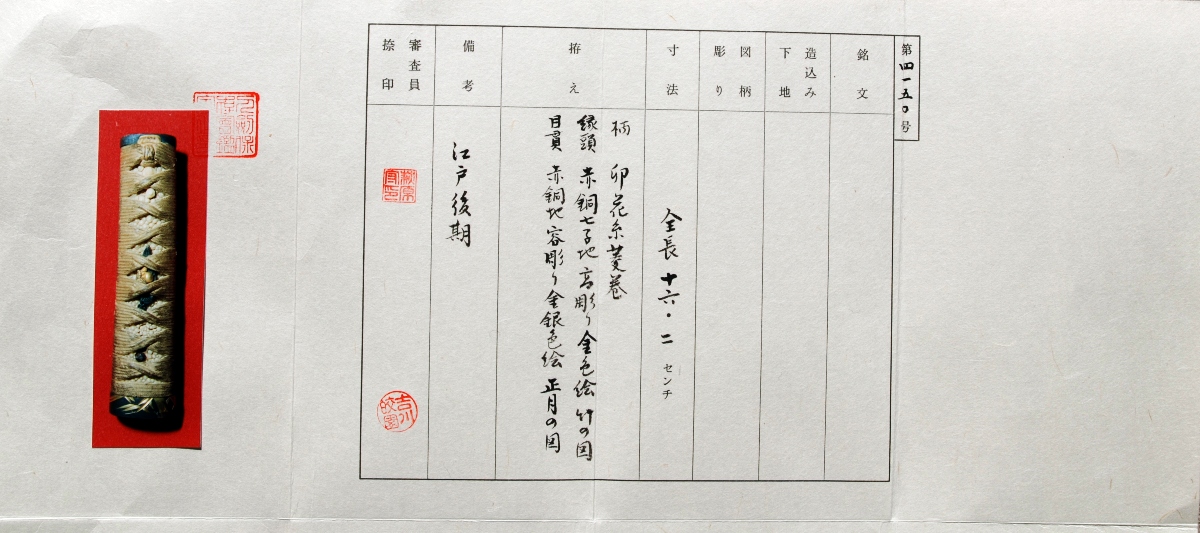 第四一五〇号
銘文
造込み
下地
図柄
彫り
寸法
全長 十六・二 センチ
拵え
柄 卯花糸菱巻
縁頭 赤銅七子地 高彫り 金色絵 竹の図
目貫 赤銅地 容彫り 金銀色絵 正月の図
備考
江戸後期
審査員
捺印